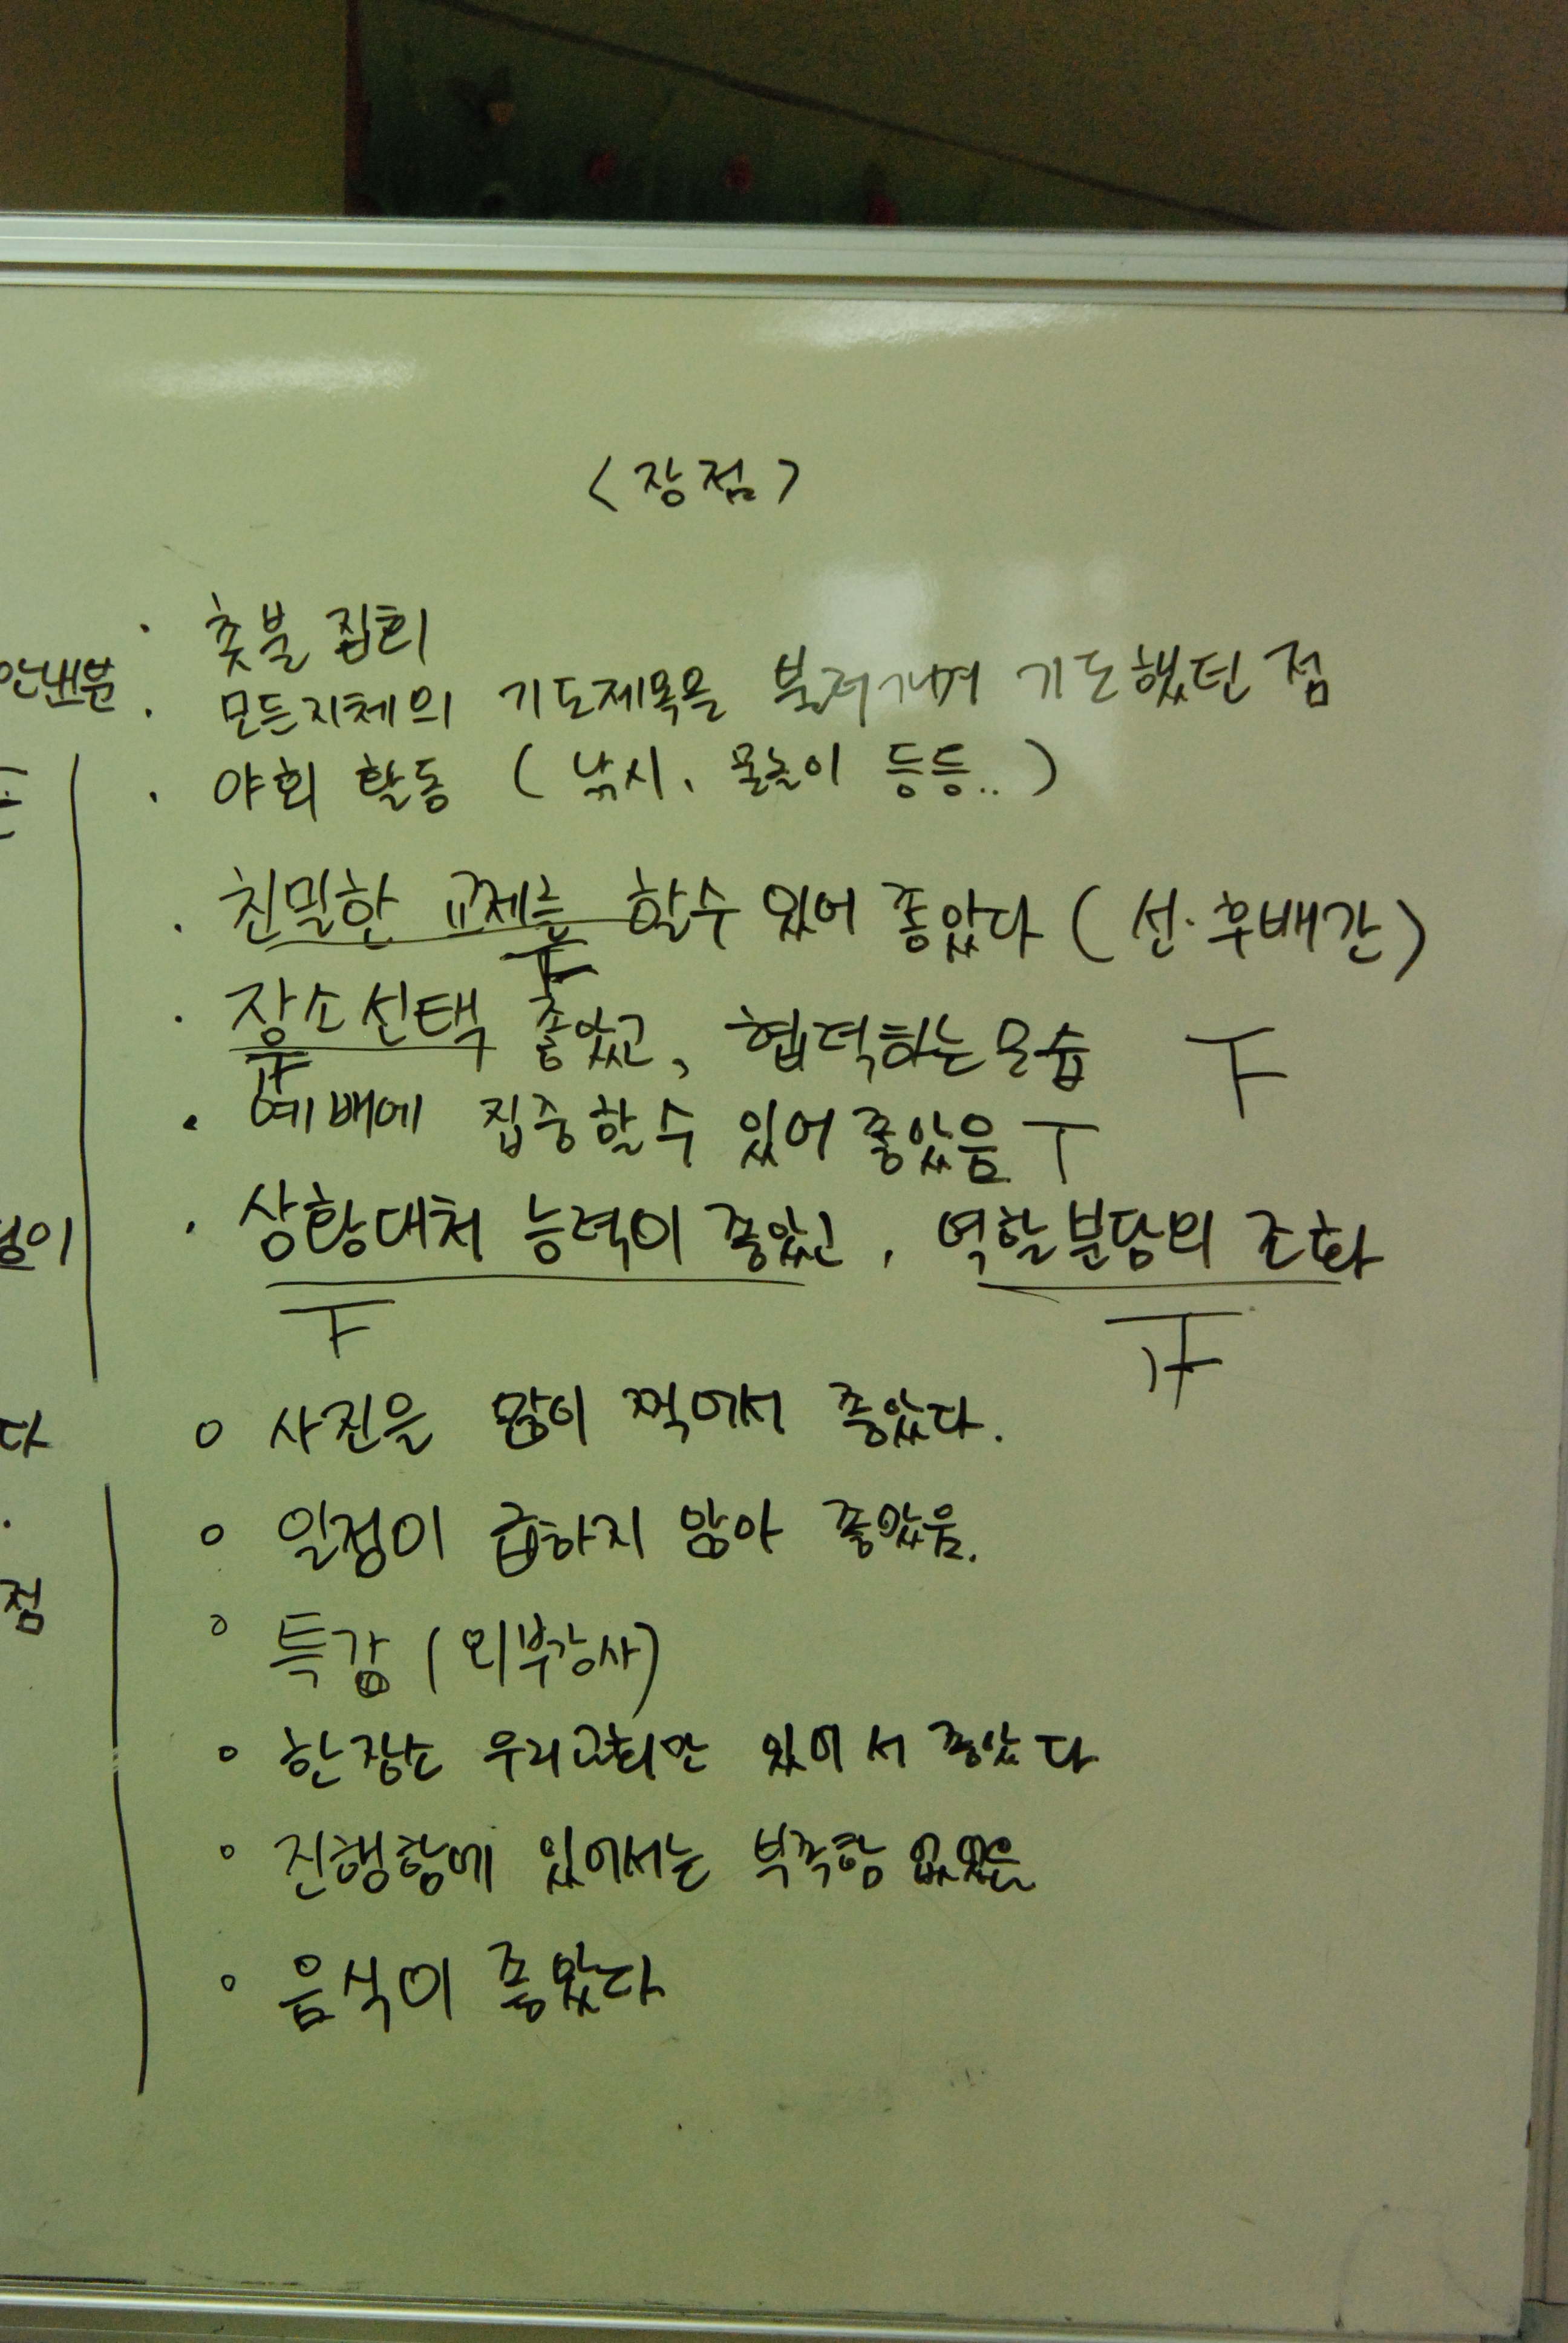 <장점>
· 촛불 집회
안내분 · 모든지체의 기도제목을 불러가며 기도했던 점
· 야회 활동 (낚시, 물놀이 등등..)
· 친밀한 교제를 할수 있어 좋았다 (선·후배간)
· 장소선택 좋았고, 협력하는모습
· 예배에 집중할수 있어 좋았음
점이 · 상황대처 능력이 좋았고, 역할분담의 조화
다 ○ 사진을 많이 찍어서 좋았다.
○ 일정이 급하지 않아 좋았음.
점 ○ 특강 (외부강사)
○ 한장소 우리교회만 있어서 좋았다
○ 진행함에 있어서는 부족함 없었음
○ 음식이 좋았다